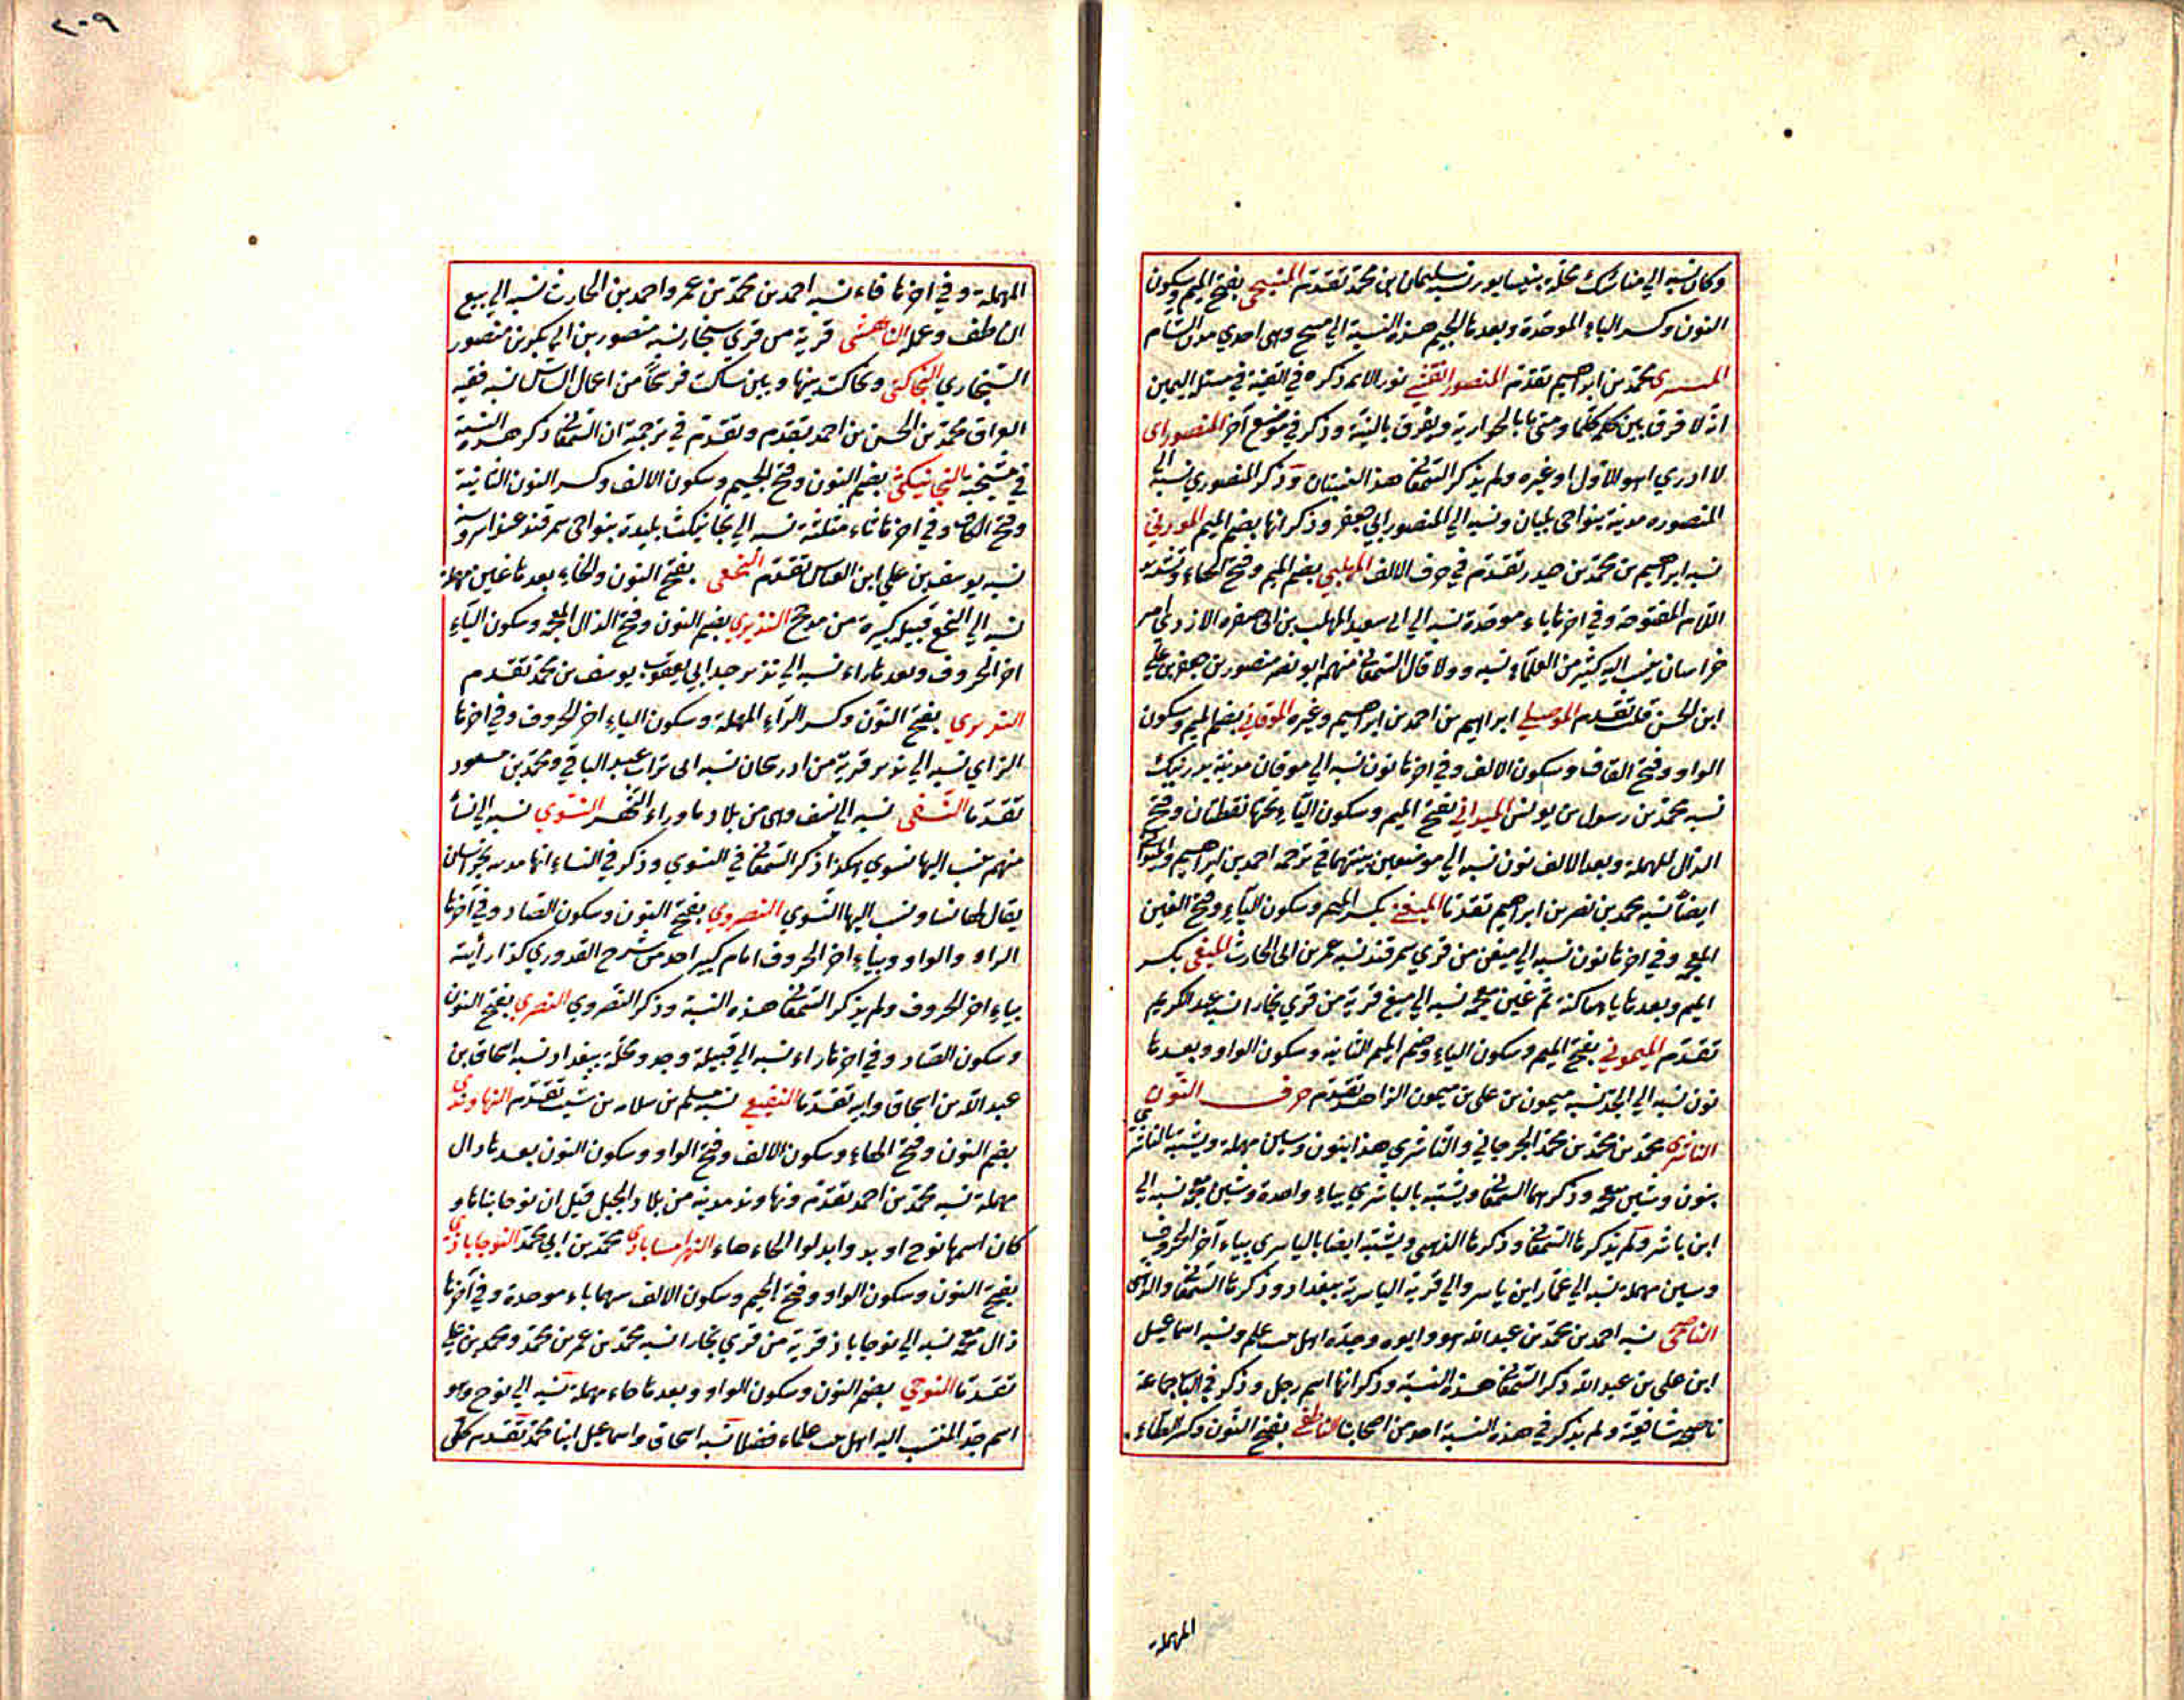 وكاف نسبة الي مناشك محلة بنيسابور نسبة سليمان بن محمد تقدم المنبجي بفتح الميم وسكون
النون وكسر الباء الموحدة وبعدها الجيم هذه النسبة الي منبج وهي احدي مدن الشام
محمد بن ابراهيم تقدم المنصور نور الائمة ذكره في القنية في مسئل اليمين
انه لا فرق بين كلما ومتى ما بالخوارية ولا يفرق بالنية وذكر في موضع آخر المنصوراى
لا ادري اهو الاول او غيره ولم يذكر السمعاني هذا وذكر المنصوري نسبة الى
المنصوره مدينة بنواحى ونسبة الي المنصور ابي جعفر وذكر انها بضم الميم
نسبة ابراهيم بن محمد بن حيدر تقدم في حرف الالف المهلبي بضم الميم وفتح الهاء وتشديد
اللام المفتوحة وفي اخرها باء موحدة نسبة الي ابى سعيد المهلب بن ابى صفره الازدي امير
خراسان ينسب اليه كثير من العلماء نسبه وولا قال السمعاني منهم ابو نصر منصور بن جعفر بن علي
ابن الحسن قلت تقدم الموصلي ابراهيم بن احمد بن ابراهيم وغيره الموقاني بضم الميم وسكون
الواو وفتح القاف وسكون الالف وفي اخرها نون نسبة الي موقان مدينة
نسبة محمد بن رسول بن يونس الميداني بفتح الميم وسكون الياء تحتها نقطتان وفتح
الدال المهملة وبعد الالف نون نسبة الي موضعين بينتهما في ترجمة احمد بن ابراهيم
ايضا نسبة محمد بن نصر بن ابراهيم تقدما الميغني بكسر الميم وسكون الياء وفتح الغين
المعجمة وفي اخرها نون نسبة الي ميغن من قري سمرقند نسبة عمر بن ابى الحارث الميغى بكسر
الميم وبعدها ياء ساكنة ثم غين معجمة نسبة الي ميغ قرية من قري بخارا نسبة عبد الكريم
تقدم الميموني بفتح الميم وسكون الياء وضم الميم الثانية وسكون الواو وبعدها
نون نسبة الي الجد نسبة ميمون بن علي بن ميمون الزاهد تقدم حرف النون
محمد بن محمد بن محمد الجرجاني هذا بنون وسين مهملة ويشتبه بالناشري
بنون وشين معجمة وذكرهما السمعاني ويشتبه بالباشري بباء واحدة وشين معجمة نسبة الي
ابن باشر ولم يذكرها السمعاني وذكرها الذهبي ويشتبه ايضا بالياسري بياء آخر الحروف
وسين مهملة نسبة الي عمار ابن ياسر والي قرية الياسرية ببغداد وذكرها السمعاني والذهبي
الناصحى نسبة احمد بن محمد بن عبد الله هو وابوه وجده اهل بيت علم ونسبة اسماعيل
ابن علي بن عبد الله ذكر السمعاني هذه النسبة وذكر انها اسم رجل وذكر في الباب جماعة
ناصحية شافعية ولم يذكر في هذه النسبة احد من اصحابنا الناطفي بفتح النون وكسر الطاء
المهملة
٢٠٩
المهملة وفي اخرها فاء نسبة احمد بن محمد بن عمر واحمد بن الحارث نسبة الي بيع
الناطف وعمله قرية من قري سنجار نسبة منصور بن ابي بكر بن منصور
السنجاري النجاكثى ونجاكث بينها وبين بناكث فرسخا من اعمال الشاش نسبة فقيه
العراق محمد بن الحسن بن احمد تقدم وتقدم في ترجمته ان السمعاني ذكر هذه النسبة
في مشيخته النجانيكثى بضم النون وفتح الجيم وسكون الالف وكسر النون الثانية
وفتح الكاف وفي اخرها ثاء مثلثة نسبة الي نجانيكث بليدة بنواحى سمرقند عند اسروشنة
نسبة يوسف بن علي ابن العباس تقدم النخعى بفتح النون والخاء بعدها عين مهملة
نسبة الي النخع قبيلة كبيرة من مذحج النذيري بضم النون وفتح الذال المعجمة وسكون الياء
اخر الحروف وبعدها راء نسبة الي نذير جد ابي يعقوب يوسف بن محمد تقدم
النريزي بفتح النون وكسر الراء المهملة وسكون الياء اخر الحروف وفي اخرها
الزاي نسبة الي نريز قرية من اذربيجان نسبة ابى تراب عبد الباقي ومحمد بن مسعود
تقدما النسفى نسبة الي نسف وهى من بلاد ما وراء النهر النسوي نسبة الي نسا
منهم ينسب اليها نسوي هكذا ذكر السمعاني في النسوي وذكر في النساء انها مدينة بخراسان
يقال لها نسا وينسب اليها النسوي النصروي بفتح النون وسكون الصاد وفي آخرها
الراء والواو وياء اخر الحروف امام كبير احد من شرح القدوري كذا رأيته
بياء اخر الحروف ولم يذكر السمعاني هذه النسبة وذكر النصروي النصري بفتح النون
وسكون الصاد وفي اخرها راء نسبة الي قبيلة وجد ومحلة ببغداد نسبة اسحاق بن
عبد الله بن اسحاق وابنه تقدما نسبة مسلم بن سلامه بن شبيب تقدم النهاوندي
بضم النون وفتح الهاء وسكون الالف وفتح الواو وسكون النون بعدها دال
مهملة نسبة محمد بن احمد تقدم ونهاوند مدينة من بلاد الجبل قيل ان نوحا بناها و
كان اسمها نوح اوند وابدلوا الحاء هاء محمد بن ابي محمد النوجاباذي
بفتح النون وسكون الواو وفتح الجيم وسكون الالف بينهما باء موحدة وفي آخرها
ذال معجمة نسبة الي نوجاباذ قرية من قري بخارا نسبة محمد بن عمر بن محمد ومحمد بن علي
تقدما النوحي بضم النون وسكون الواو وبعدها حاء مهملة نسبة الي نوح وهو
اسم جد المنتسب اليه اهل بيت علماء فضلا نسبة اسحاق واسماعيل ابنا محمد تقدم